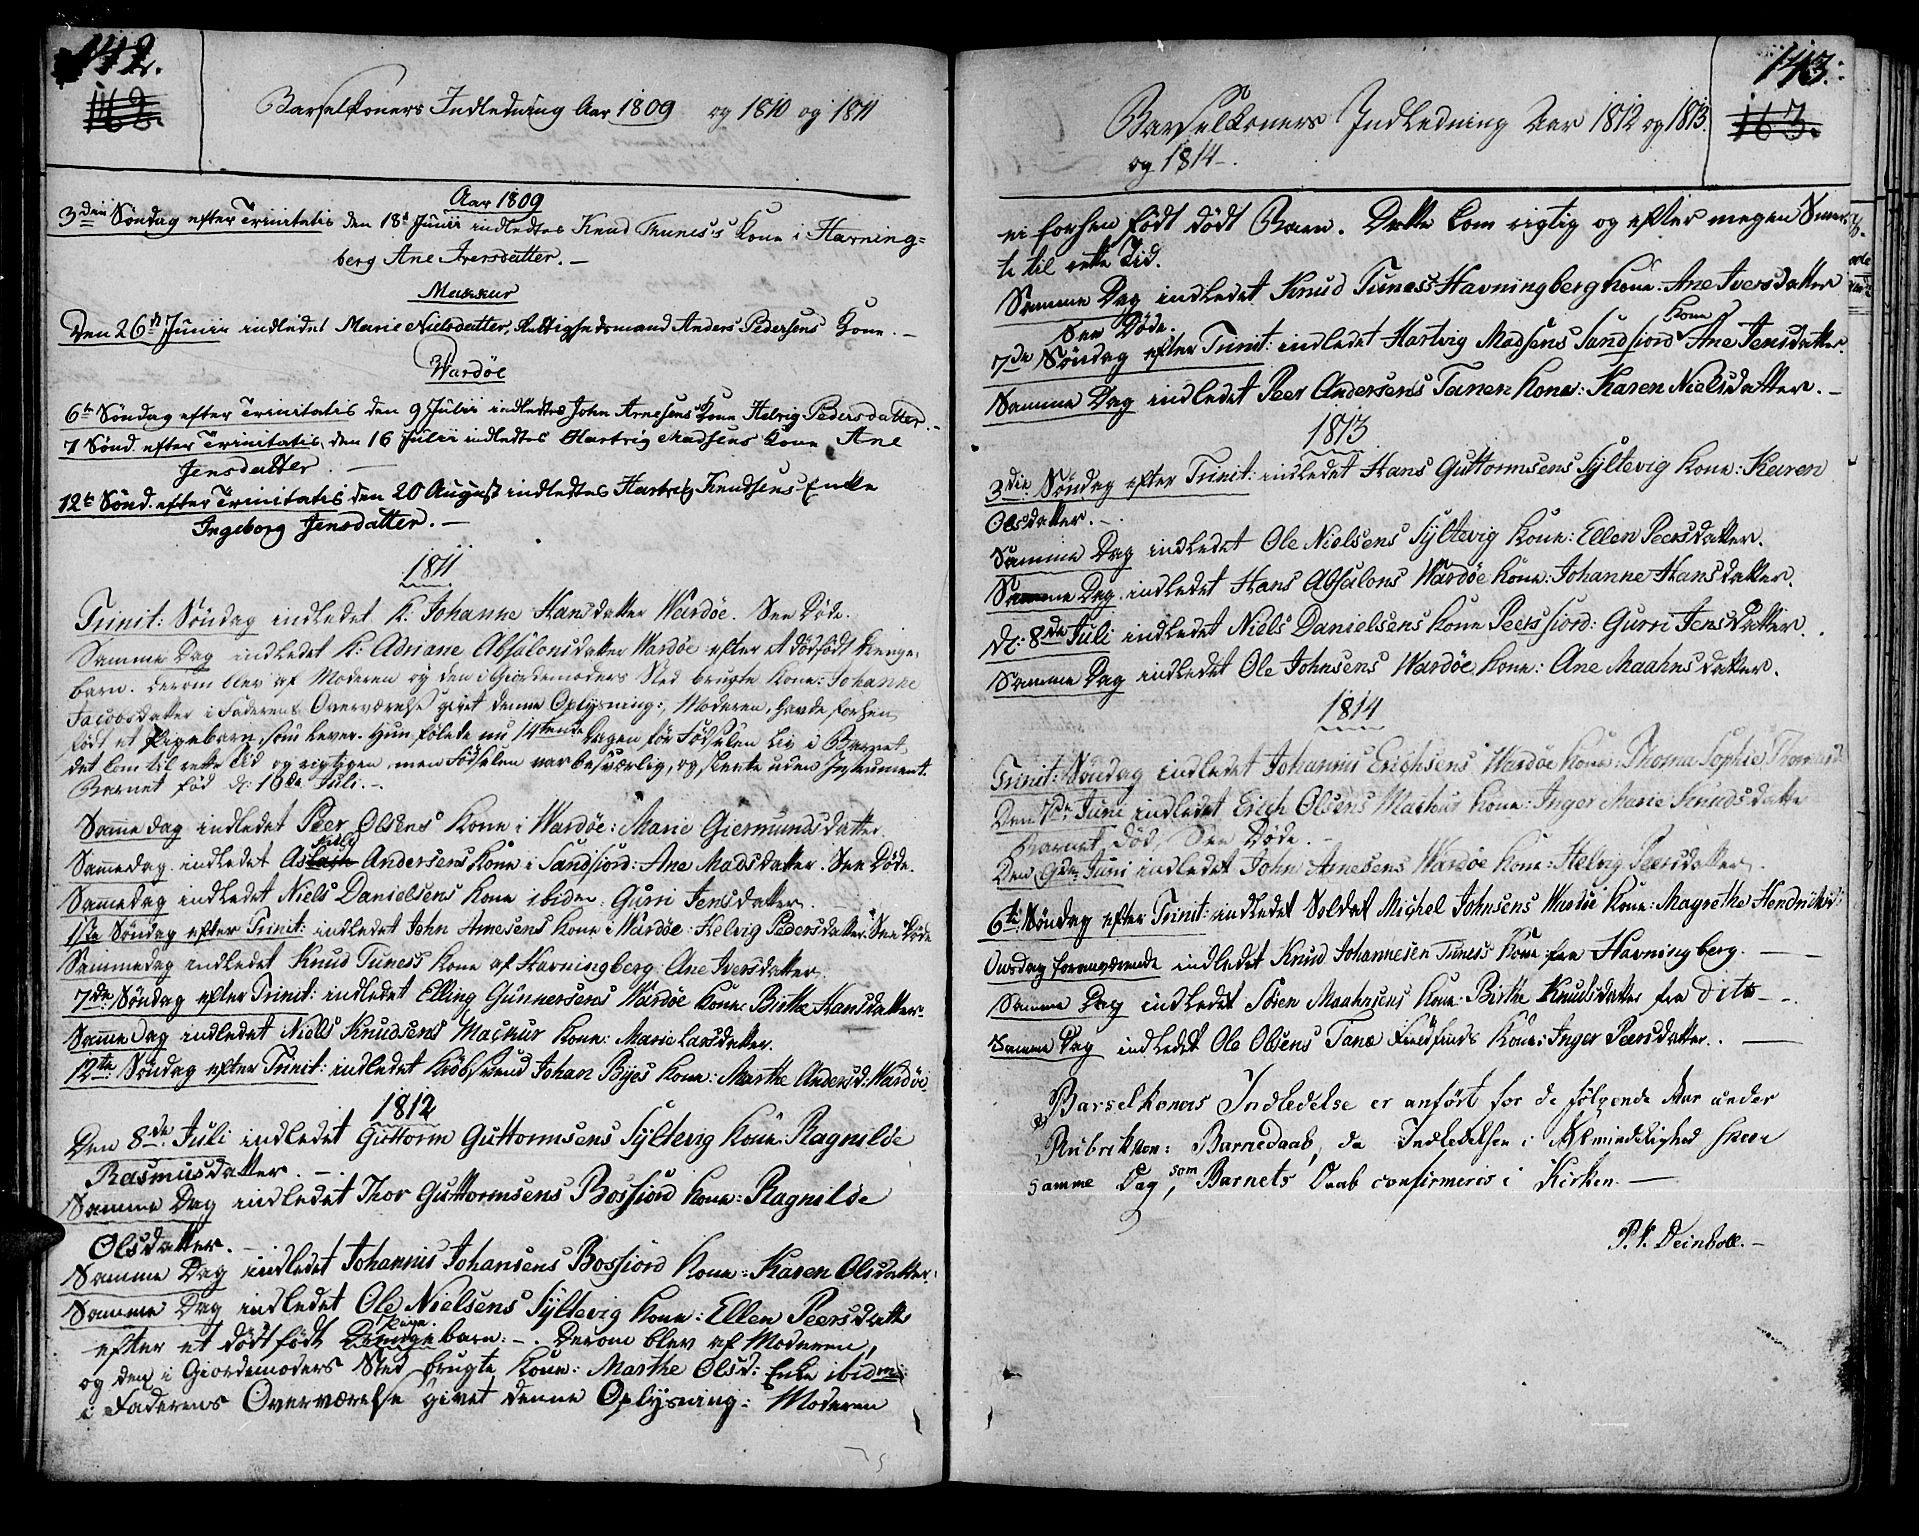 142.
162.
Barselkoners Indledning Aar 1809 og 1810 og 1811
Aar 1809
3die Søndag efter Trinitatis den 18d Junii indledtes Knud Thuness Kone i Havning=
berg Ane Iversdatter. —
Makkur
Den 26th Junii indledet Marie Nielsdatter, Rettighedsmand Anders Pedersens Kone. —
Wardøe
6te Søndag efter Trinitatis den 9 Julii indledtes John Arnesens Kone Helvig Pedersdatter. —
7 Sønd. efter Trinitatis, den 16 Julii indledtes Hartvig Madsens Kone Ane
Jensdatter. —
12te Sønd. efter Trinitatis den 20 August indledtes Hartvig Knudsens Enke
Ingeborg Jensdatter. —
1811
Trinit: Søndag indledet K. Johanne Hansdatter Wardøe. See Døde.
Samme Dag indledet K: Adriane Absalonsdatter Wardøe efter et dødfødt Drenge-
barn. Derom blev af Moderen og den i Giordemoders Sted brugte Kone: Johanne
Jacobsdatter i Faderens Overværelse givet denne Oplysning: Moderen havde forhen
født et Pigebarn, som lever. Hun følede nu 14tende Dagen før Fødselen Liv i Barnet,
det kom til rette Tid og rigtigen, men Fødselen var besværlig, og skeete uden Instrument.
Barnet fød d: 10de Juli. —
Samme dag indledet Peer Olsens Kone i Wardøe: Marie Giermundsdatter.
Sammedag indledet Andersens Kone i Sandfiord: Ane Madsdatter. See Døde.
Sammedag indledet Niels Danielsens Kone ibidem: Gurri Jensdatter.
1ste Søndag efter Trinit: indledet John Arnesens Kone i Wardøe: Helvig Pedersdatter. See Døde
Sammedag indledet Knud Tuness Kone af Havningberg: Ane Iversdatter.
7de Søndag efter Trinit: indledet Elling Gunnersens Wardøe Kone: Birthe Hansdatter.
Samme Dag indledet Niels Knudsens Mackur Kone: Marie Larsdatter.
12te Søndag efter Trinit: indledet Kiøbsvend Johan Byes Kone: Marthe Andersd: Wardøe.
1812
Den 8de Juli indledet Guttorm Guttormsens Syltevig Kone: Ragnilde
Rasmusdatter. —
Samme Dag indledet Thor Guttormsens Bosfiord Kone: Ragnilde
Olsdatter. —
Samme Dag indledet Johannis Johansens Bosfiord Kone: Karen Olsdatter.
Samme Dag indledet Ole Nielsens Syltevig Kone: Ellen Peersdatter
Pige.
efter et dødtfødt Drenge barn: —. Derom blev af Moderen,
og den i Giordemoders Sted brugte Kone: Marthe Olsd: Enke ibidm:
i Faderens Overværelse givet denne Oplysning: Moderen
143.
163.
Barselkoners Indledning Aar 1812 og 1813.
og 1814 —.
ei forhen født dødt Barn. Dette kom rigtig og efter megen Smer-
te til rette Tid.
Samme Dag indledet Knud Tuness Havningberg Kone: Ane Iversdatter
See Døde.
Kone
7de Søndag efter Trinit: indledet Hartvig Madsens Sandfiord Ane Jensdatter.
Samme Dag indledet Peer Andersens Tanen Kone: Karen Nielsdatter. —
1813
3die Søndag efter Trinit: indledet Hans Guttormsens Syltevig Kone: Karen
Olsdatter. —.
Samme Dag indledet Ole Nielsens Syltevig Kone: Ellen Peersdatter.
Samme Dag indledet Hans Absalons Wardøe Kone: Johanne Hansdatter.
d: 8de Juli indledet Niels Danielsens Kone Peersfiord: Gurri Jensdatter.
Samme Dag indledet Ole Johnsens Wardøe Kone: Ane Maahnsdatter.
1814
Trinit: Søndag indledet Johannis Erichsens Wardøe Kone: Thoma Sophie Thomasd:
Den 7de Juni indledet Erich Olsens Mackur Kone: Inger Marie Knudsdatter
Barnet død, See Døde. —
Den 9de Juni indledet John Arnesens Wardøe Kone: Helvig Peersdatter.
6te Søndag efter Trinit: indledet Soldat Michel Johnsens Wardøe Kone: Magrethe Hendriksd:
Onsdag foranværende indledet Knud Johannesen Tuness Kone fra Havningberg. —
Samme Dag indledet Søren Maahnsens Kone: Birthe Knudsdatter fra dito —.
Samme Dag indledet Ole Olsens Tanæ Fieldfinds Kone: Inger Peersdatter. —
Barselkoners Indledelse er anført for de følgende Aar under
Rubrikken: Barnedaab, da Indledelsen i Almindelighed skeer
samme Dag, som Barnets Daab confirmeres i Kirken. —
P. V. Deinboll. —